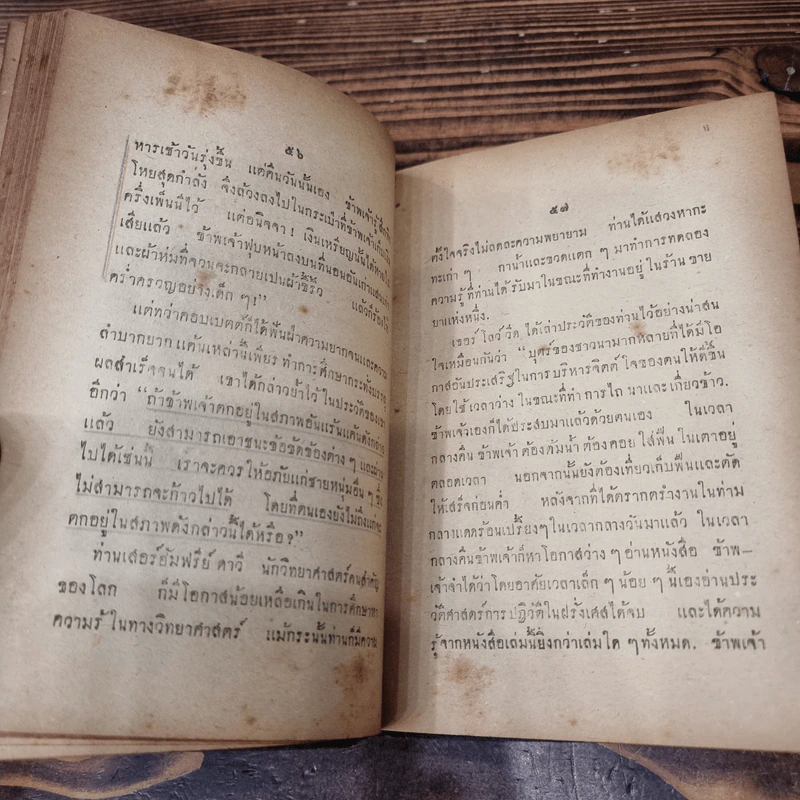 ๕๖
หารเช้าวันรุ่งขึ้น แต่คืนวันนั้นเอง ข้าพเจ้ารู้สึกหิว
โหยสุดกำลัง จึงล้วงลงไปในกระเป๋าที่ข้าพเจ้าเก็บเงิน
ครึ่งเพ็นนีไว้ แต่อนิจจา! เงินเหรียญนั้นได้หายไป
เสียแล้ว ข้าพเจ้าฟุบหน้าลงบนที่นอนอันเก่าแสนเก่า
และผ้าห่มที่จวนจะกลายเปนผ้าขี้ริ้ว แล้วก็ร้องไห้
คร่ำครวญอย่างเด็ก ๆ!"
แต่ทว่าคอบเบตต์ก็ได้ฟันฝ่าความยากจนและความ
ลำบากยากแค้นเหล่านี้เพียร ทำการศึกษากระทั่งบรรลุ
ผลสำเร็จจนได้ เขาได้กล่าวย้ำไว้ ในประวัติของเขา
อีกว่า "ถ้าข้าพเจ้าตกอยู่ในสภาพอันแร้นแค้นดังกล่าว
แล้ว ยังสามารถเอาชนะข้อขัดข้องต่าง ๆ และผ่าน
ไปได้เช่นนี้ เราจะควรให้อภัยแก่ชายหนุ่มอื่น ๆ ซึ่ง
ไม่สามารถจะก้าวไปได้ โดยที่ตนเองยังไม่ถึงแก่
ตกอยู่ในสภาพดังกล่าวนี้ได้หรือ?"
ท่านเสอร์ฮัมฟรีย์ ดาวี นักวิทยาศาสตร์คนสำคัญ
ของโลก ก็มีโอกาสน้อยเหลือเกินในการศึกษาหา
ความรู้ ในทางวิทยาศาสตร์ แม้กระนั้นท่านก็มีความ
๕๗
ตั้งใจจริงไม่ลดละความพยายาม ท่านได้แสวงหากะ
ทะเก่า ๆ กาน้ำและขวดแตก ๆ มาทำการทดลอง
ความรู้ ที่ท่านได้ รับมาในขณะที่ทำงานอยู่ ในร้าน ขาย
ยาแห่งหนึ่ง.
เธอร์ โลว์ วีด ได้เล่าประวัติของท่านไว้อย่างน่าสน
ใจเหมือนกันว่า "บุตร์ของชาวนามากหลายที่ได้มีโอ
กาสอันประเสริฐในการ บริหารจิตต์ ใจของตนให้ดีขึ้น
โดย ใช้ เวลาว่าง ในขณะที่ทำ การ ไถ นา และ เกี่ยวข้าว.
ข้าพเจ้าเองก็ได้ประสบมาแล้วด้วยตนเอง ในเวลา
กลางคืน ข้าพเจ้า ต้อง ต้มน้ำ ต้อง คอย ใส่ ฟืน ในเตาอยู่
ตลอดเวลา นอกจากนั้นยังต้องเที่ยวเก็บฟืนและตัด
ให้เสร็จก่อนค่ำ หลังจากที่ได้ตรากตรำงานในท่าม
กลางแดดร้อนเปรี้ยงๆ ในเวลากลางวันมาแล้ว ในเวลา
กลางคืนข้าพเจ้าก็หาโอกาสว่าง ๆ อ่านหนังสือ ข้าพ–
เจ้าจำได้ว่าโดยอาศัยเวลาเล็ก ๆ น้อย ๆ นี้เองอ่านประ
วัติศาสตร์การ ปฏิวัติ ในฝรั่งเศสได้จบ และได้ความ
รู้จากหนังสือเล่มนี้ยิ่งกว่าเล่มใด ๆ ทั้งหมด. ข้าพเจ้า